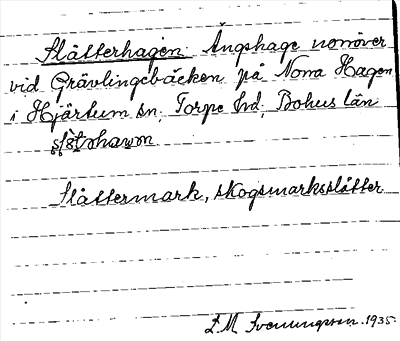 Slåtterhagen. Ängshage norröver
vid Grävlingebäcken på Norra Hagen
i Hjärtum sn, Torpe hd, Bohus län

Slåttermark, skogsmarksslåtter
L M Svenungsson. 1935.